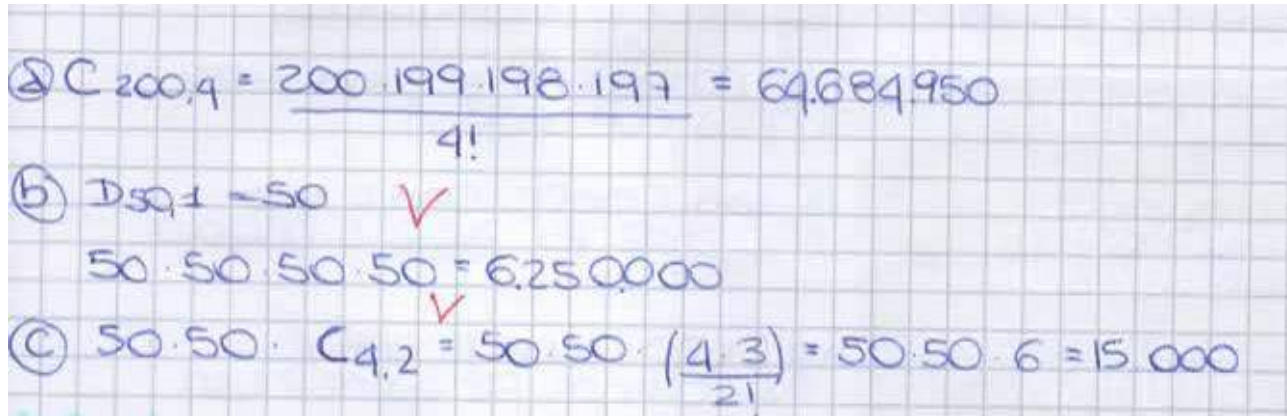 ⓐ C 200,4 = 200.199.198.197 / 4! = 64.684.950
ⓑ D50,1 = 50 V
50.50.50.50 = 6.250.000
ⓒ 50.50. C4,2 = 50.50.(4.3 / 2!) = 50.50.6 = 15.000 V